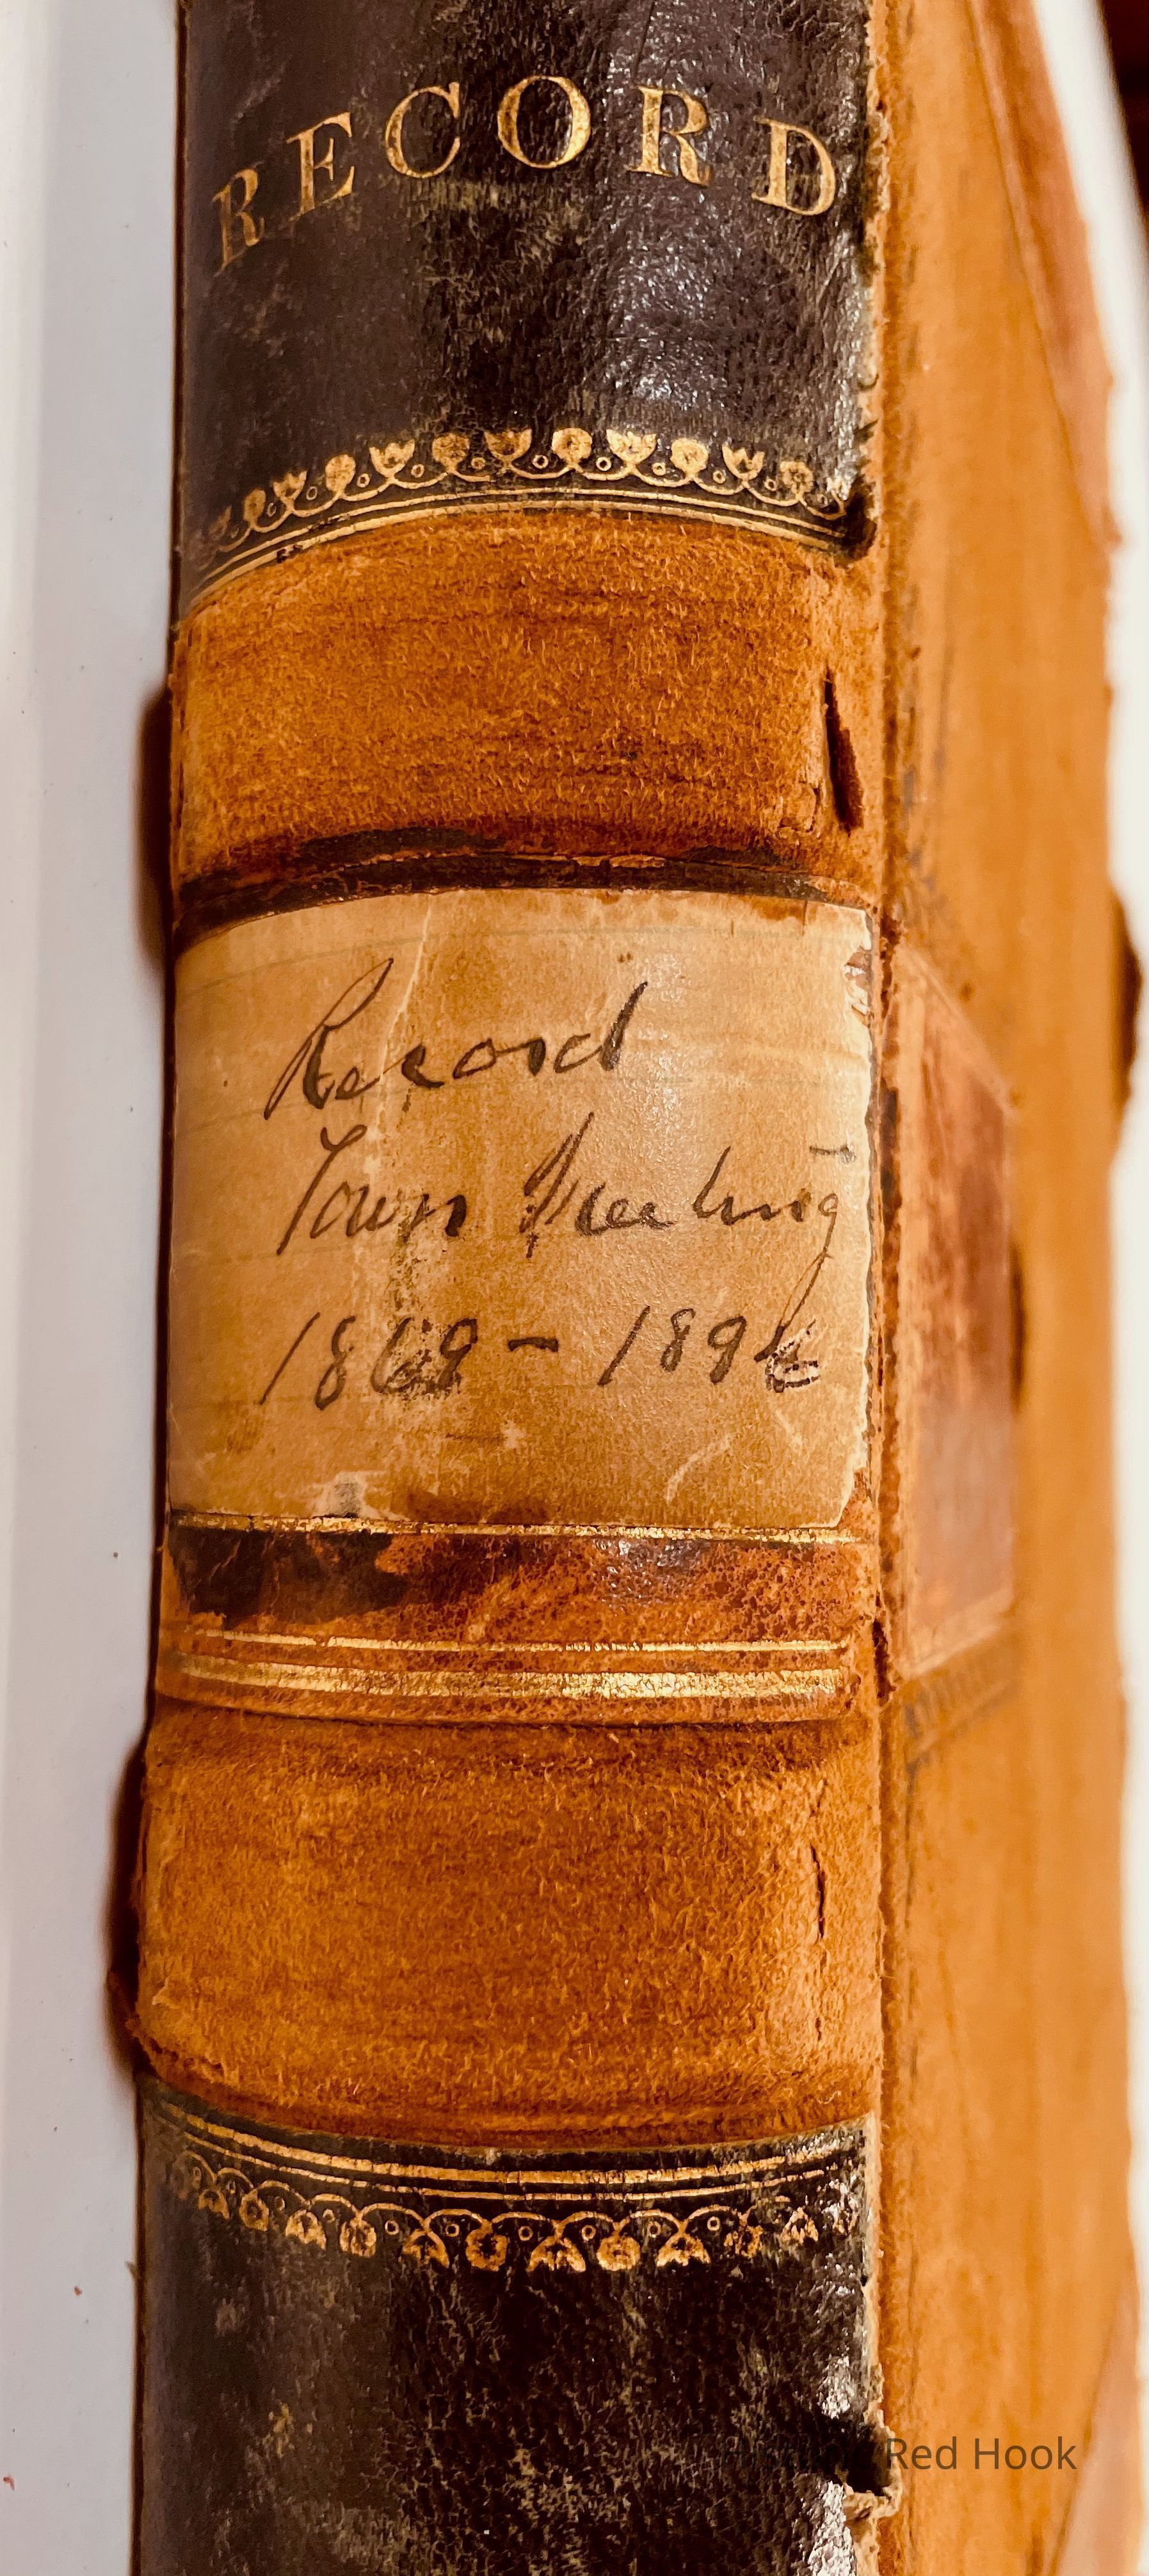 RECORD
Record
Town Meeting
1869 - 1896
Historic Red Hook